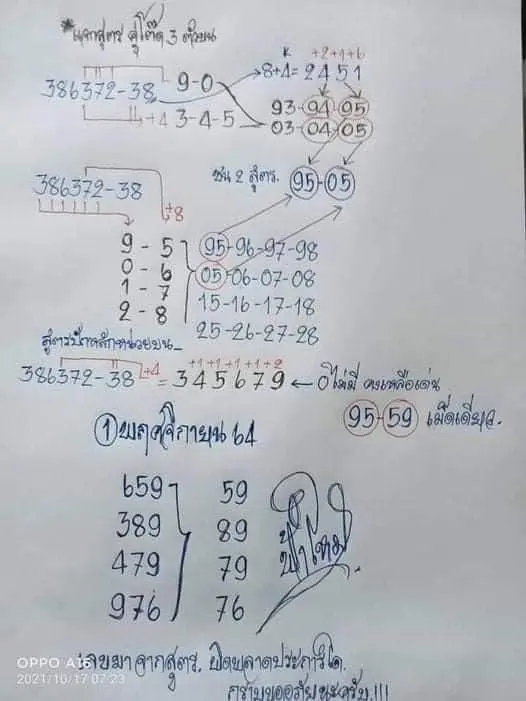 *แจกสูตร คู่โต๊ด 3 ตัวบน
K +2+1+6
8+4=2451
386372-38 9-0
+4 3-4-5
93-94-95
03-04-05
ชน 2 สูตร. 95-05
386372-38
+8
9-5 95-96-97-98
0-6 05-06-07-08
1-7 15-16-17-18
2-8 25-26-27-28
สูตรปักหลักหน่วยบน
+1+1+1+1+2
386372-38 +4 = 345679 ← 0ไม่มี คงเหลือเด่น
95-59 เม็ดเดียว.
① พฤศจิกายน 64
659 59
389 89
479 79
976 76
ฟ้าใหม่
เลขมาจากสูตร. ผิดพลาดประการใด.
กราบขออภัยนะครับ.!!!
OPPO A16
2021/10/17 07:23